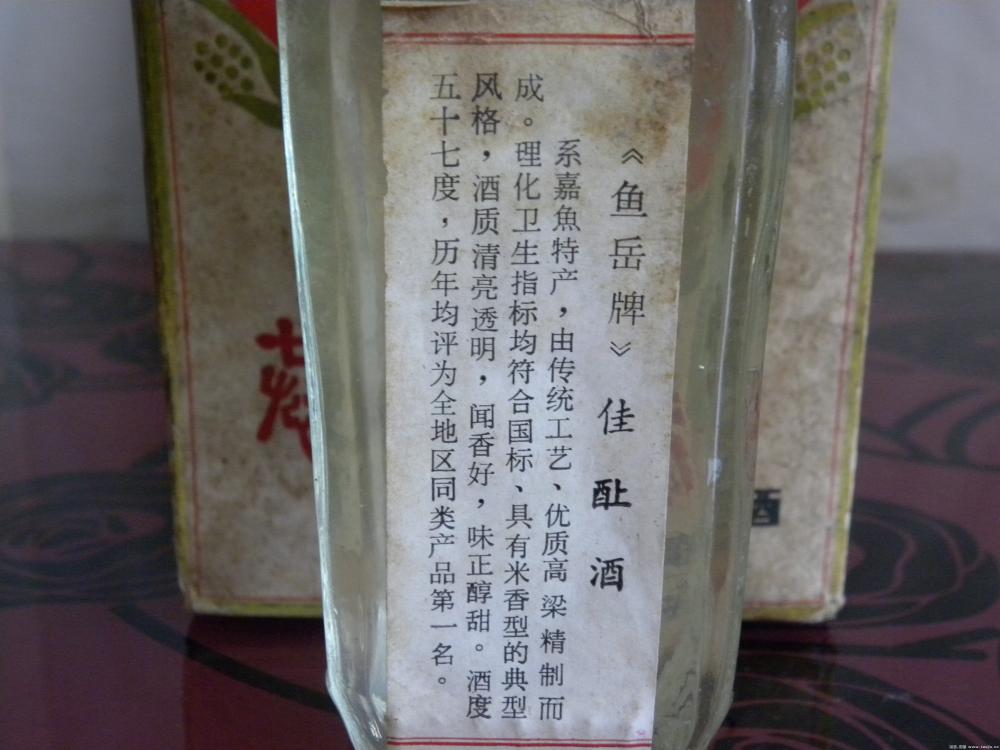 《鱼岳牌》佳 酒
系嘉魚特产，由传统工艺、优质高梁精制而
成。理化卫生指标均符合国标、具有米香型的典型
风格，酒质清亮透明，闻香好，味正醇甜。酒度
五十七度，历年均评为全地区同类产品第一名。
酒